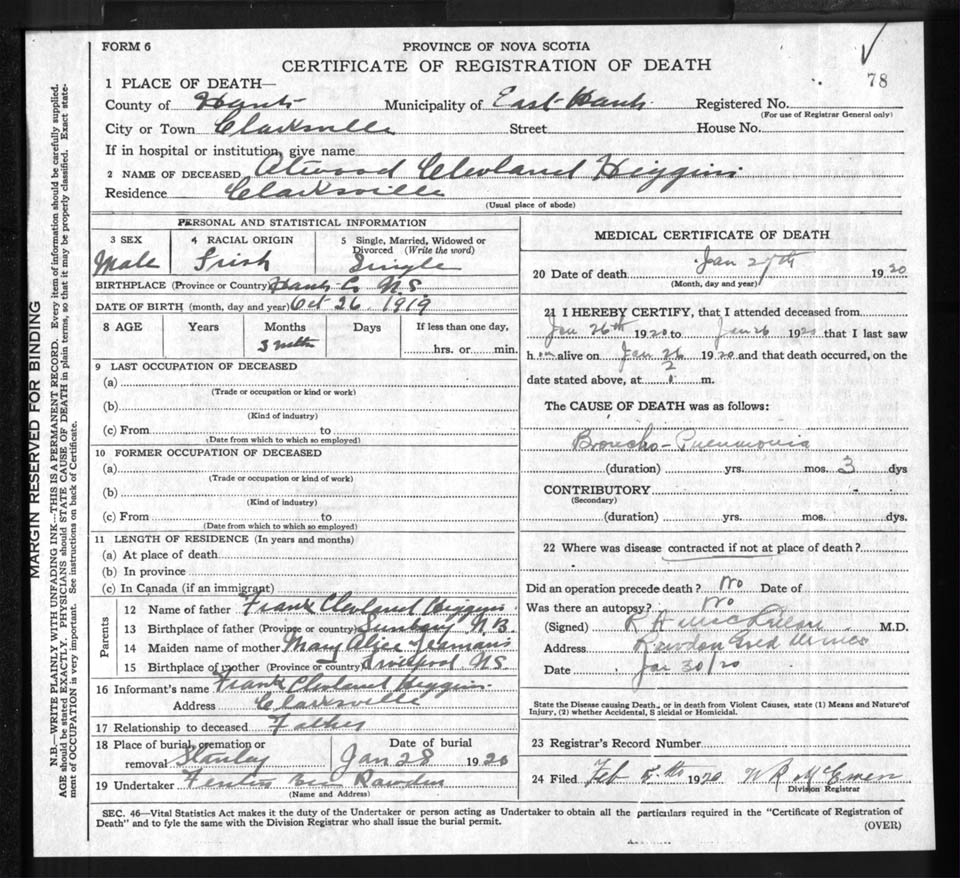 78
FORM 6
PROVINCE OF NOVA SCOTIA
CERTIFICATE OF REGISTRATION OF DEATH
1 PLACE OF DEATH—
County of Hants Municipality of East Hants Registered No.
(For use of Registrar General only)
City or Town Clarksville Street House No.
If in hospital or institution, give name
2 NAME OF DECEASED Atwood Clevland Higgins
Residence Clarksville
(Usual place of abode)
PERSONAL AND STATISTICAL INFORMATION
3 SEX Male
4 RACIAL ORIGIN Irish
5 Single, Married, Widowed or Divorced (Write the word) Single
BIRTHPLACE (Province or Country) Hants Co N.S.
DATE OF BIRTH (month, day and year) Oct 26 1919
8 AGE Years Months Days If less than one day,
3 hrs. or min.
9 LAST OCCUPATION OF DECEASED
(a)
(Trade or occupation or kind or work)
(b)
(Kind of industry)
(c) From to
(Date from which to which so employed)
10 FORMER OCCUPATION OF DECEASED
(a)
(Trade or occupation or kind of work)
(b)
(Kind of industry)
(c) From to
(Date from which to which so employed)
11 LENGTH OF RESIDENCE (In years and months)
(a) At place of death
(b) In province
(c) In Canada (if an immigrant)
Parents
12 Name of father Frank Clevland Higgins
13 Birthplace of father (Province or country) Sunbury N.B.
14 Maiden name of mother Mary Alice
15 Birthplace of mother (Province or country) Liverpool N.S.
16 Informant's name Frank Clevland Higgins
Address Clarksville
17 Relationship to deceased Father
18 Place of burial, cremation or removal Stanley
Date of burial Jan 28 1920
19 Undertaker Rawdon
(Name and Address)
MEDICAL CERTIFICATE OF DEATH
20 Date of death Jan 27th 1920
(Month, day and year)
21 I HEREBY CERTIFY, that I attended deceased from
Jan 26th 1920 to Jan 26 1920 that I last saw
h im alive on Jan 26 1920 and that death occurred, on the
date stated above, at 2 m.
The CAUSE OF DEATH was as follows:
Broncho-Pneumonia
(duration) yrs. mos. 3 dys
CONTRIBUTORY
(Secondary)
(duration) yrs. mos. dys.
22 Where was disease contracted if not at place of death?
Did an operation precede death? No Date of
Was there an autopsy? No
(Signed) M.D.
Address Rawdon Gold Mines
Date Jan 30/20
State the Disease causing Death, or in death from Violent Causes, state (1) Means and Nature of
Injury, (2) whether Accidental, Suicidal or Homicidal.
23 Registrar's Record Number
24 Filed Feb 5th 1920 W R McEwen
Division Registrar
SEC. 46—Vital Statistics Act makes it the duty of the Undertaker or person acting as Undertaker to obtain all the particulars required in the "Certificate of Registration of
Death" and to fyle the same with the Division Registrar who shall issue the burial permit.
(OVER)
MARGIN RESERVED FOR BINDING
N.B.—WRITE PLAINLY WITH UNFADING INK—THIS IS A PERMANENT RECORD. Every item of information should be carefully supplied.
AGE should be stated EXACTLY. PHYSICIANS should STATE CAUSE OF DEATH in plain terms, so that it may be properly classified. Exact state-
ment of OCCUPATION is very important. See instructions on back of Certificate.